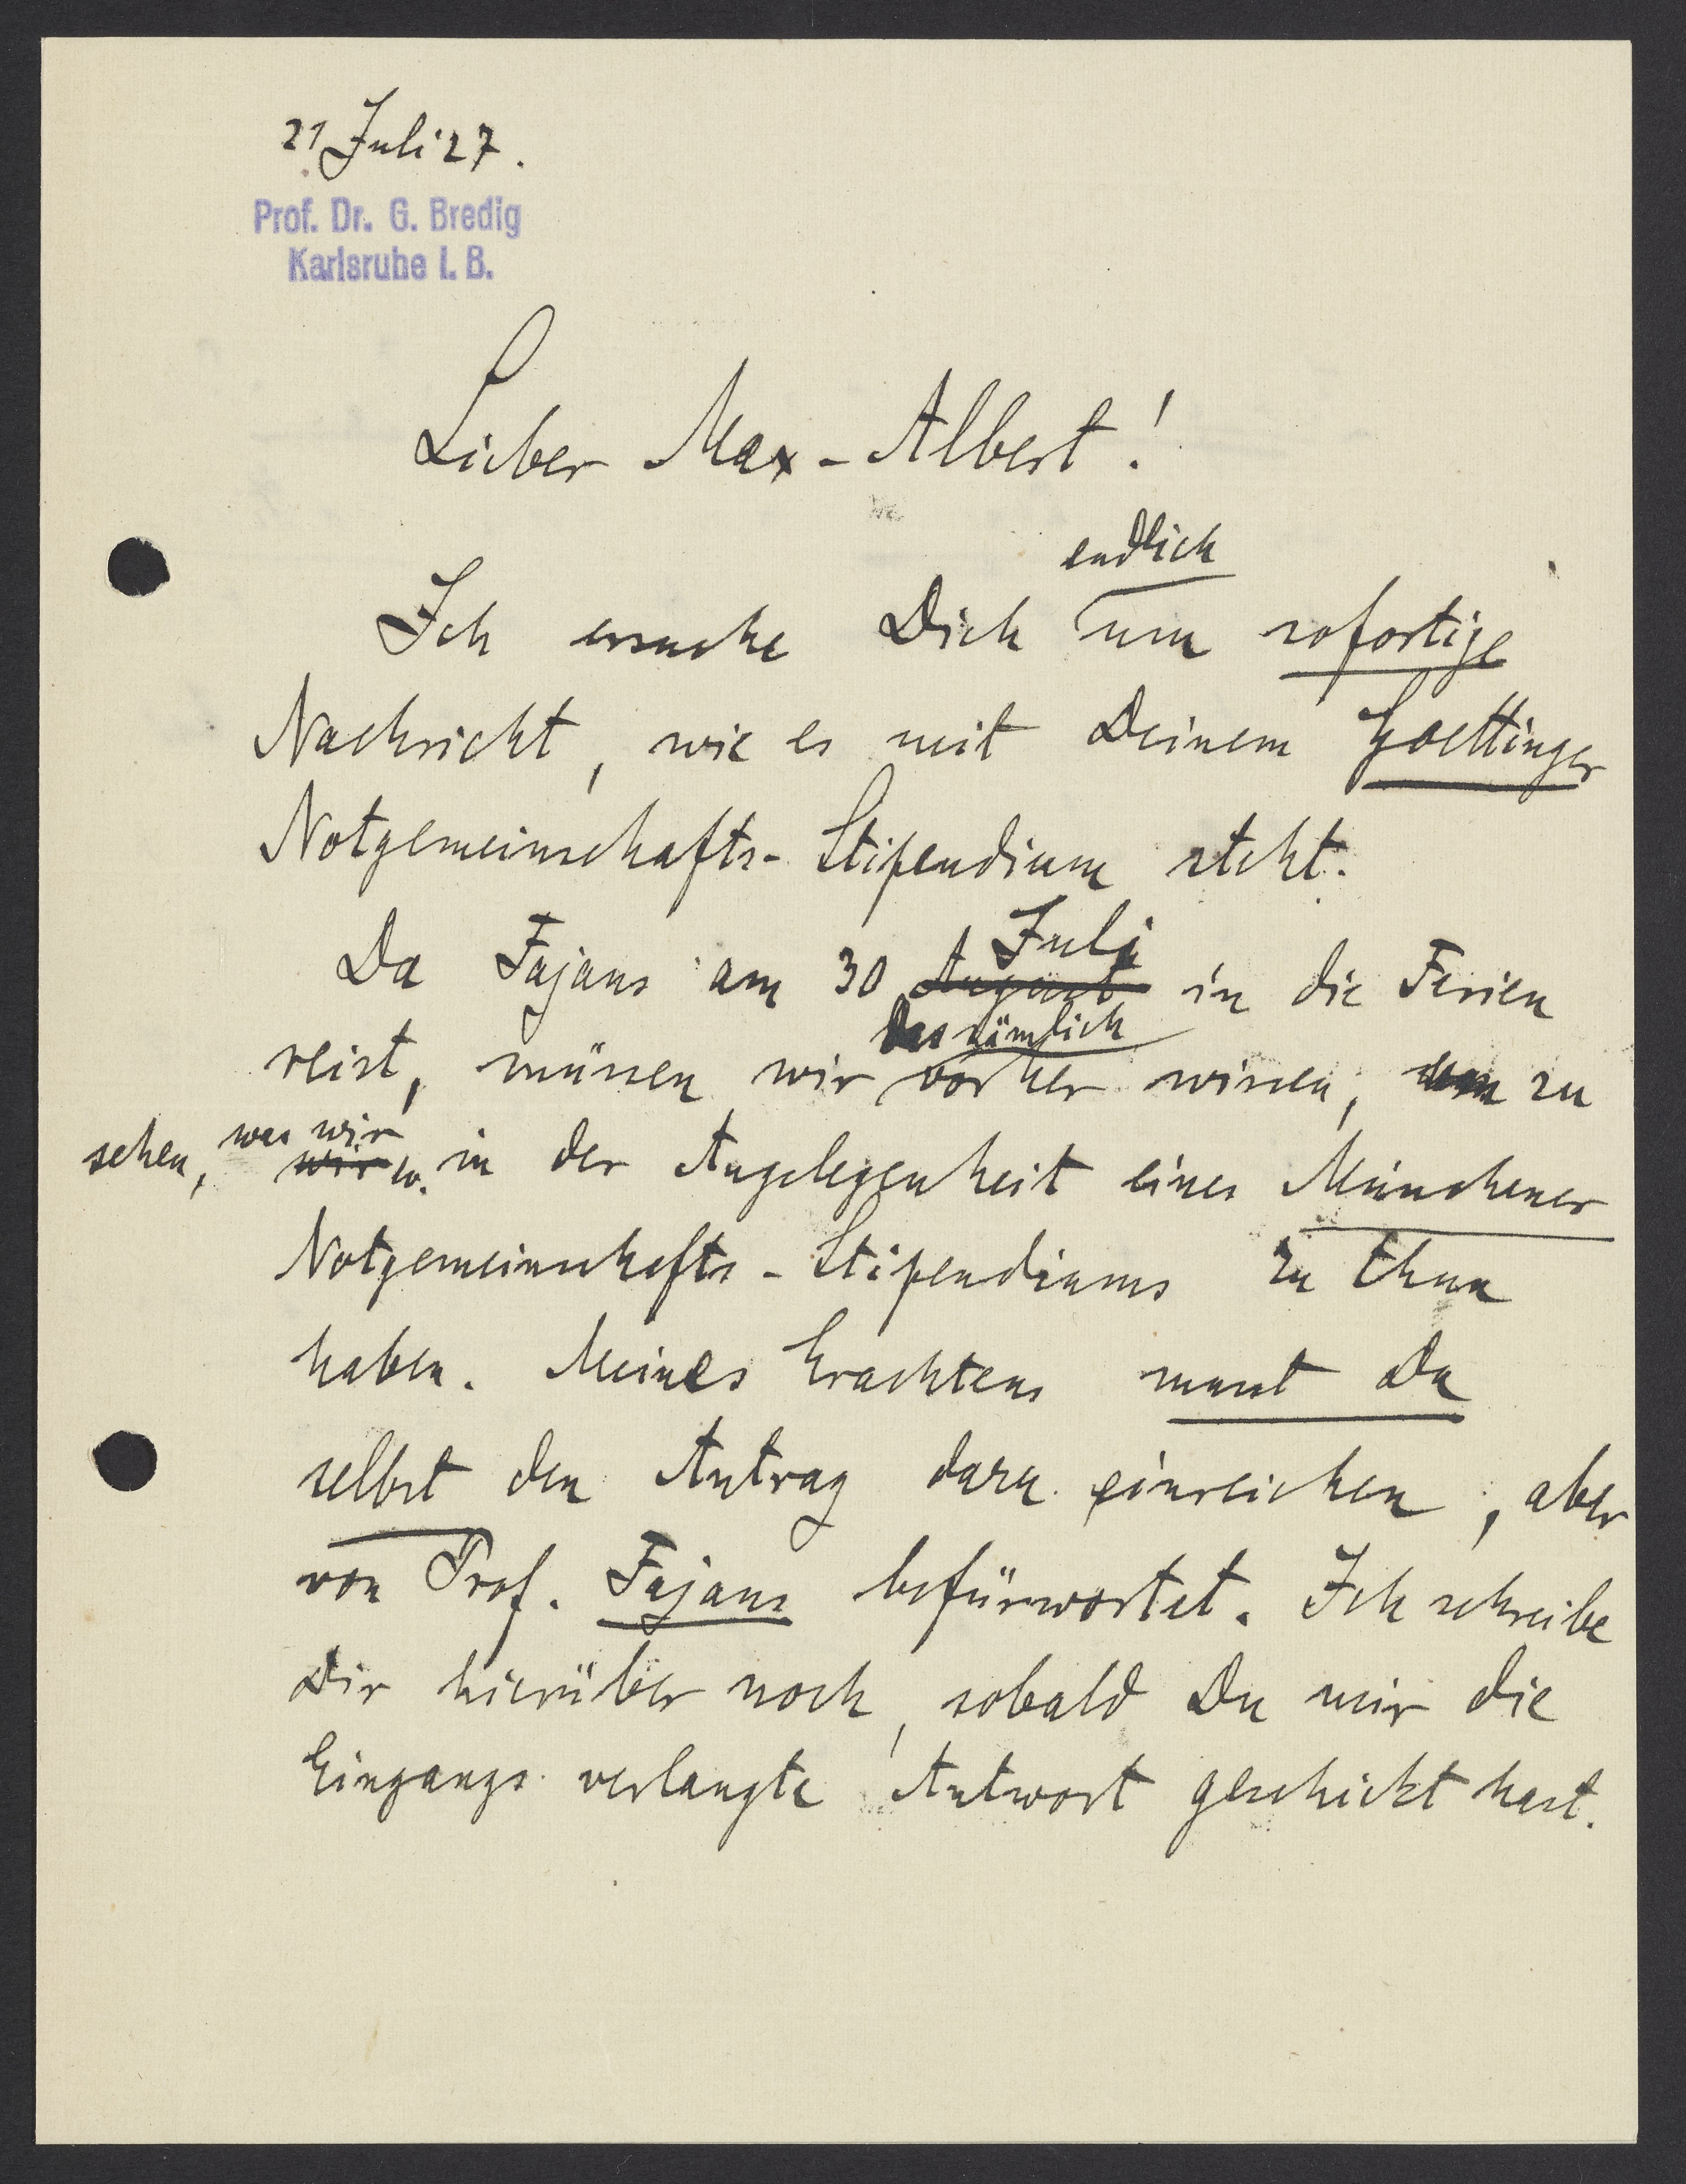 21 Juli 27.
Prof. Dr. G. Bredig
Karlsruhe i. B.
Lieber Max-Albert!
endlich
Ich ersuche Dich um sofortige
Nachricht, wie es mit Deinem Goettinger
Notgemeinschafts-Stipendium steht.
Juli
Da Fajans am 30 August in die Ferien
das nämlich
reist, müssen wir vorher wissen, um zu
was wir
sehen, wir in der Angelegenheit eines Münchener
Notgemeinschafts-Stipendiums zu thun
haben. Meines Erachtens musst Du
selbst den Antrag dazu einreichen, aber
von Prof. Fajans befürwortet. Ich schreibe
Dir hierüber noch, sobald Du mir die
Eingangs verlangte Antwort geschickt hast.